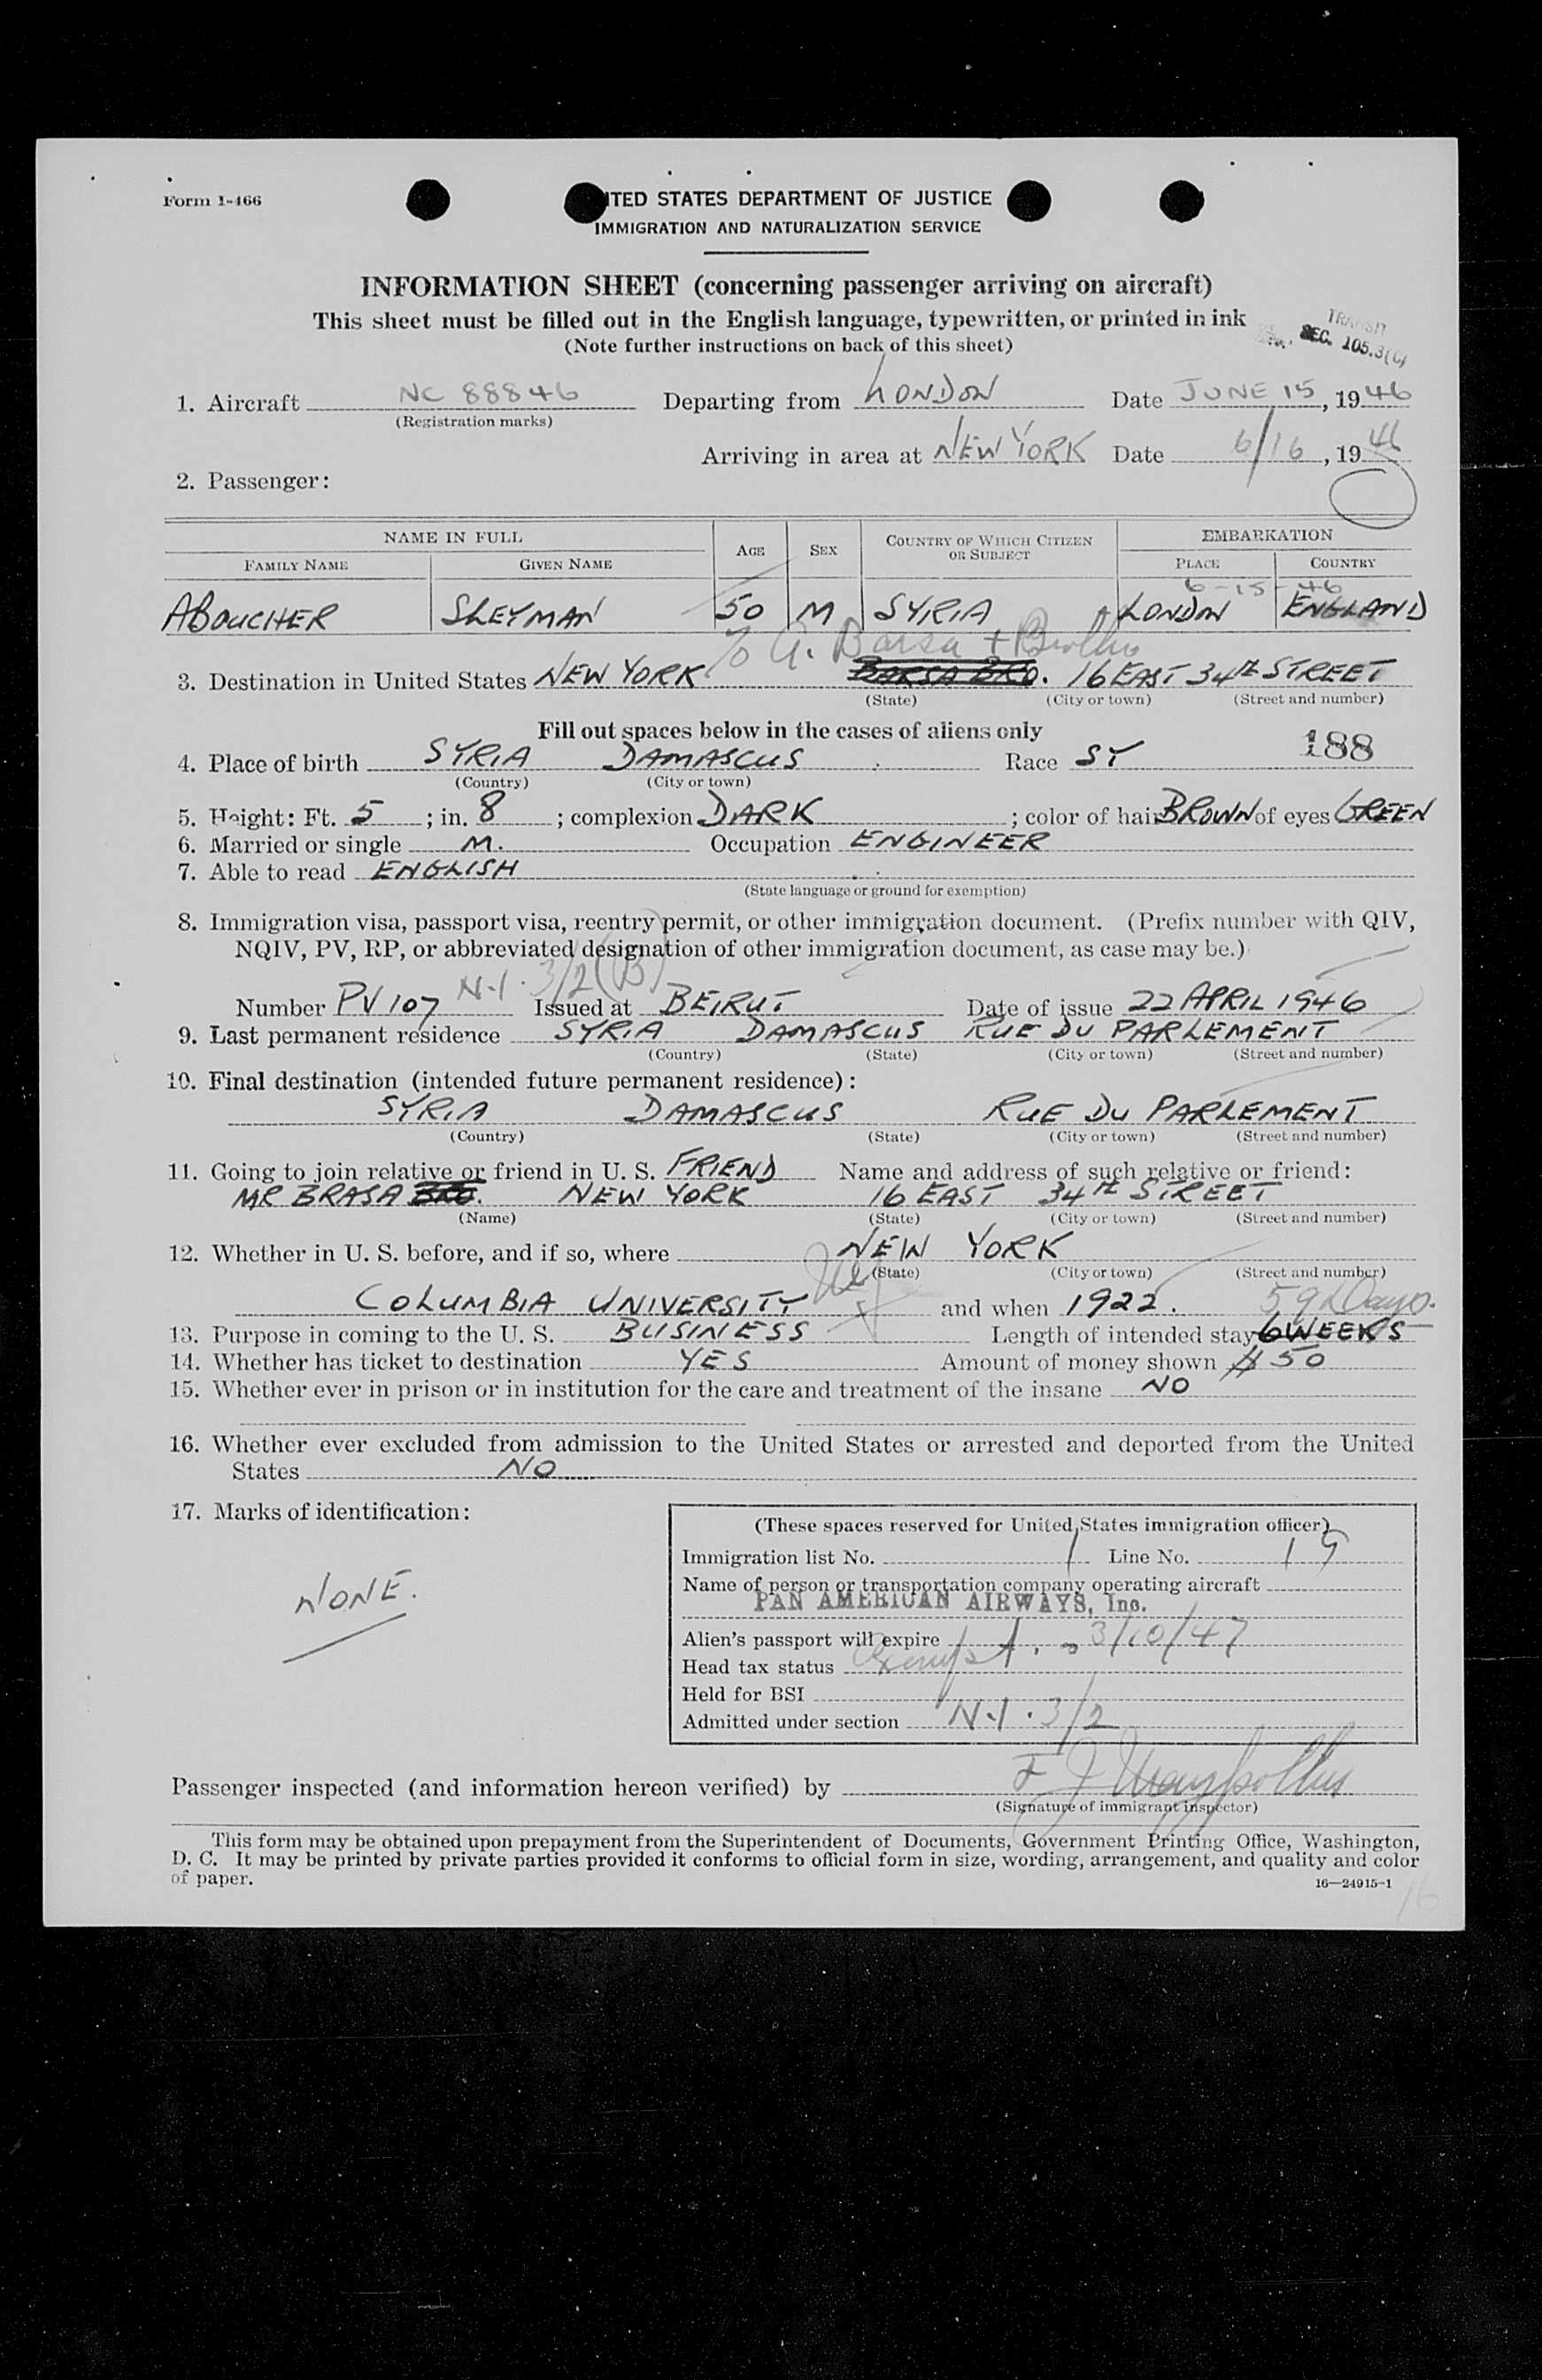 Form I-466
ITED STATES DEPARTMENT OF JUSTICE
IMMIGRATION AND NATURALIZATION SERVICE
INFORMATION SHEET (concerning passenger arriving on aircraft)
This sheet must be filled out in the English language, typewritten, or printed in ink
(Note further instructions on back of this sheet)
TRANSIT
SEC. 105.3(C)
1. Aircraft NC 88846 Departing from LONDON Date JUNE 15, 1946
(Registration marks)
Arriving in area at NEW YORK Date 6/16, 1946
2. Passenger:
NAME IN FULL AGE SEX COUNTRY OF WHICH CITIZEN OR SUBJECT EMBARKATION
FAMILY NAME GIVEN NAME PLACE COUNTRY
6-15-46
ABOUCHER SLEYMAN 50 M SYRIA LONDON ENGLAND
% G. Barsa +
3. Destination in United States NEW YORK BARSA BRO. 16 EAST 34th STREET
(State) (City or town) (Street and number)
Fill out spaces below in the cases of aliens only
188
4. Place of birth SYRIA DAMASCUS Race SY
(Country) (City or town)
5. Height: Ft. 5; in. 8; complexion DARK; color of hair BROWN of eyes GREEN
6. Married or single M. Occupation ENGINEER
7. Able to read ENGLISH
(State language or ground for exemption)
8. Immigration visa, passport visa, reentry permit, or other immigration document. (Prefix number with QIV,
NQIV, PV, RP, or abbreviated designation of other immigration document, as case may be.)
N-I. 3/2(B)
Number PV 107 Issued at BEIRUT Date of issue 22 APRIL 1946
9. Last permanent residence SYRIA DAMASCUS RUE DU PARLEMENT
(Country) (State) (City or town) (Street and number)
10. Final destination (intended future permanent residence):
SYRIA DAMASCUS RUE DU PARLEMENT
(Country) (State) (City or town) (Street and number)
11. Going to join relative or friend in U. S. FRIEND Name and address of such relative or friend:
MR BRASA BRO. NEW YORK 16 EAST 34th STREET
(Name) (State) (City or town) (Street and number)
12. Whether in U. S. before, and if so, where NEW YORK
(State) (City or town) (Street and number)
COLUMBIA UNIVERSITY and when 1922. 59 Days.
13. Purpose in coming to the U. S. BUSINESS Length of intended stay 6 WEEKS
14. Whether has ticket to destination YES Amount of money shown $ 50
15. Whether ever in prison or in institution for the care and treatment of the insane NO
16. Whether ever excluded from admission to the United States or arrested and deported from the United
States NO
17. Marks of identification:
NONE.
(These spaces reserved for United States immigration officer)
Immigration list No. 1 Line No. 19
Name of person or transportation company operating aircraft
PAN AMERICAN AIRWAYS, Inc.
Alien's passport will expire 3/10/47
Head tax status Exempt.
Held for BSI
Admitted under section N-I. 3/2
Passenger inspected (and information hereon verified) by
(Signature of immigrant inspector)
This form may be obtained upon prepayment from the Superintendent of Documents, Government Printing Office, Washington,
D. C. It may be printed by private parties provided it conforms to official form in size, wording, arrangement, and quality and color
of paper.
16—24915-1
16